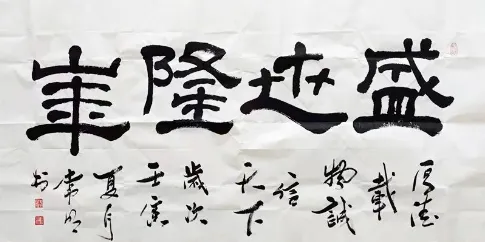 盛越隆峯
厚德
載
物誠
信
天下
歲次
壬寅
夏月
书